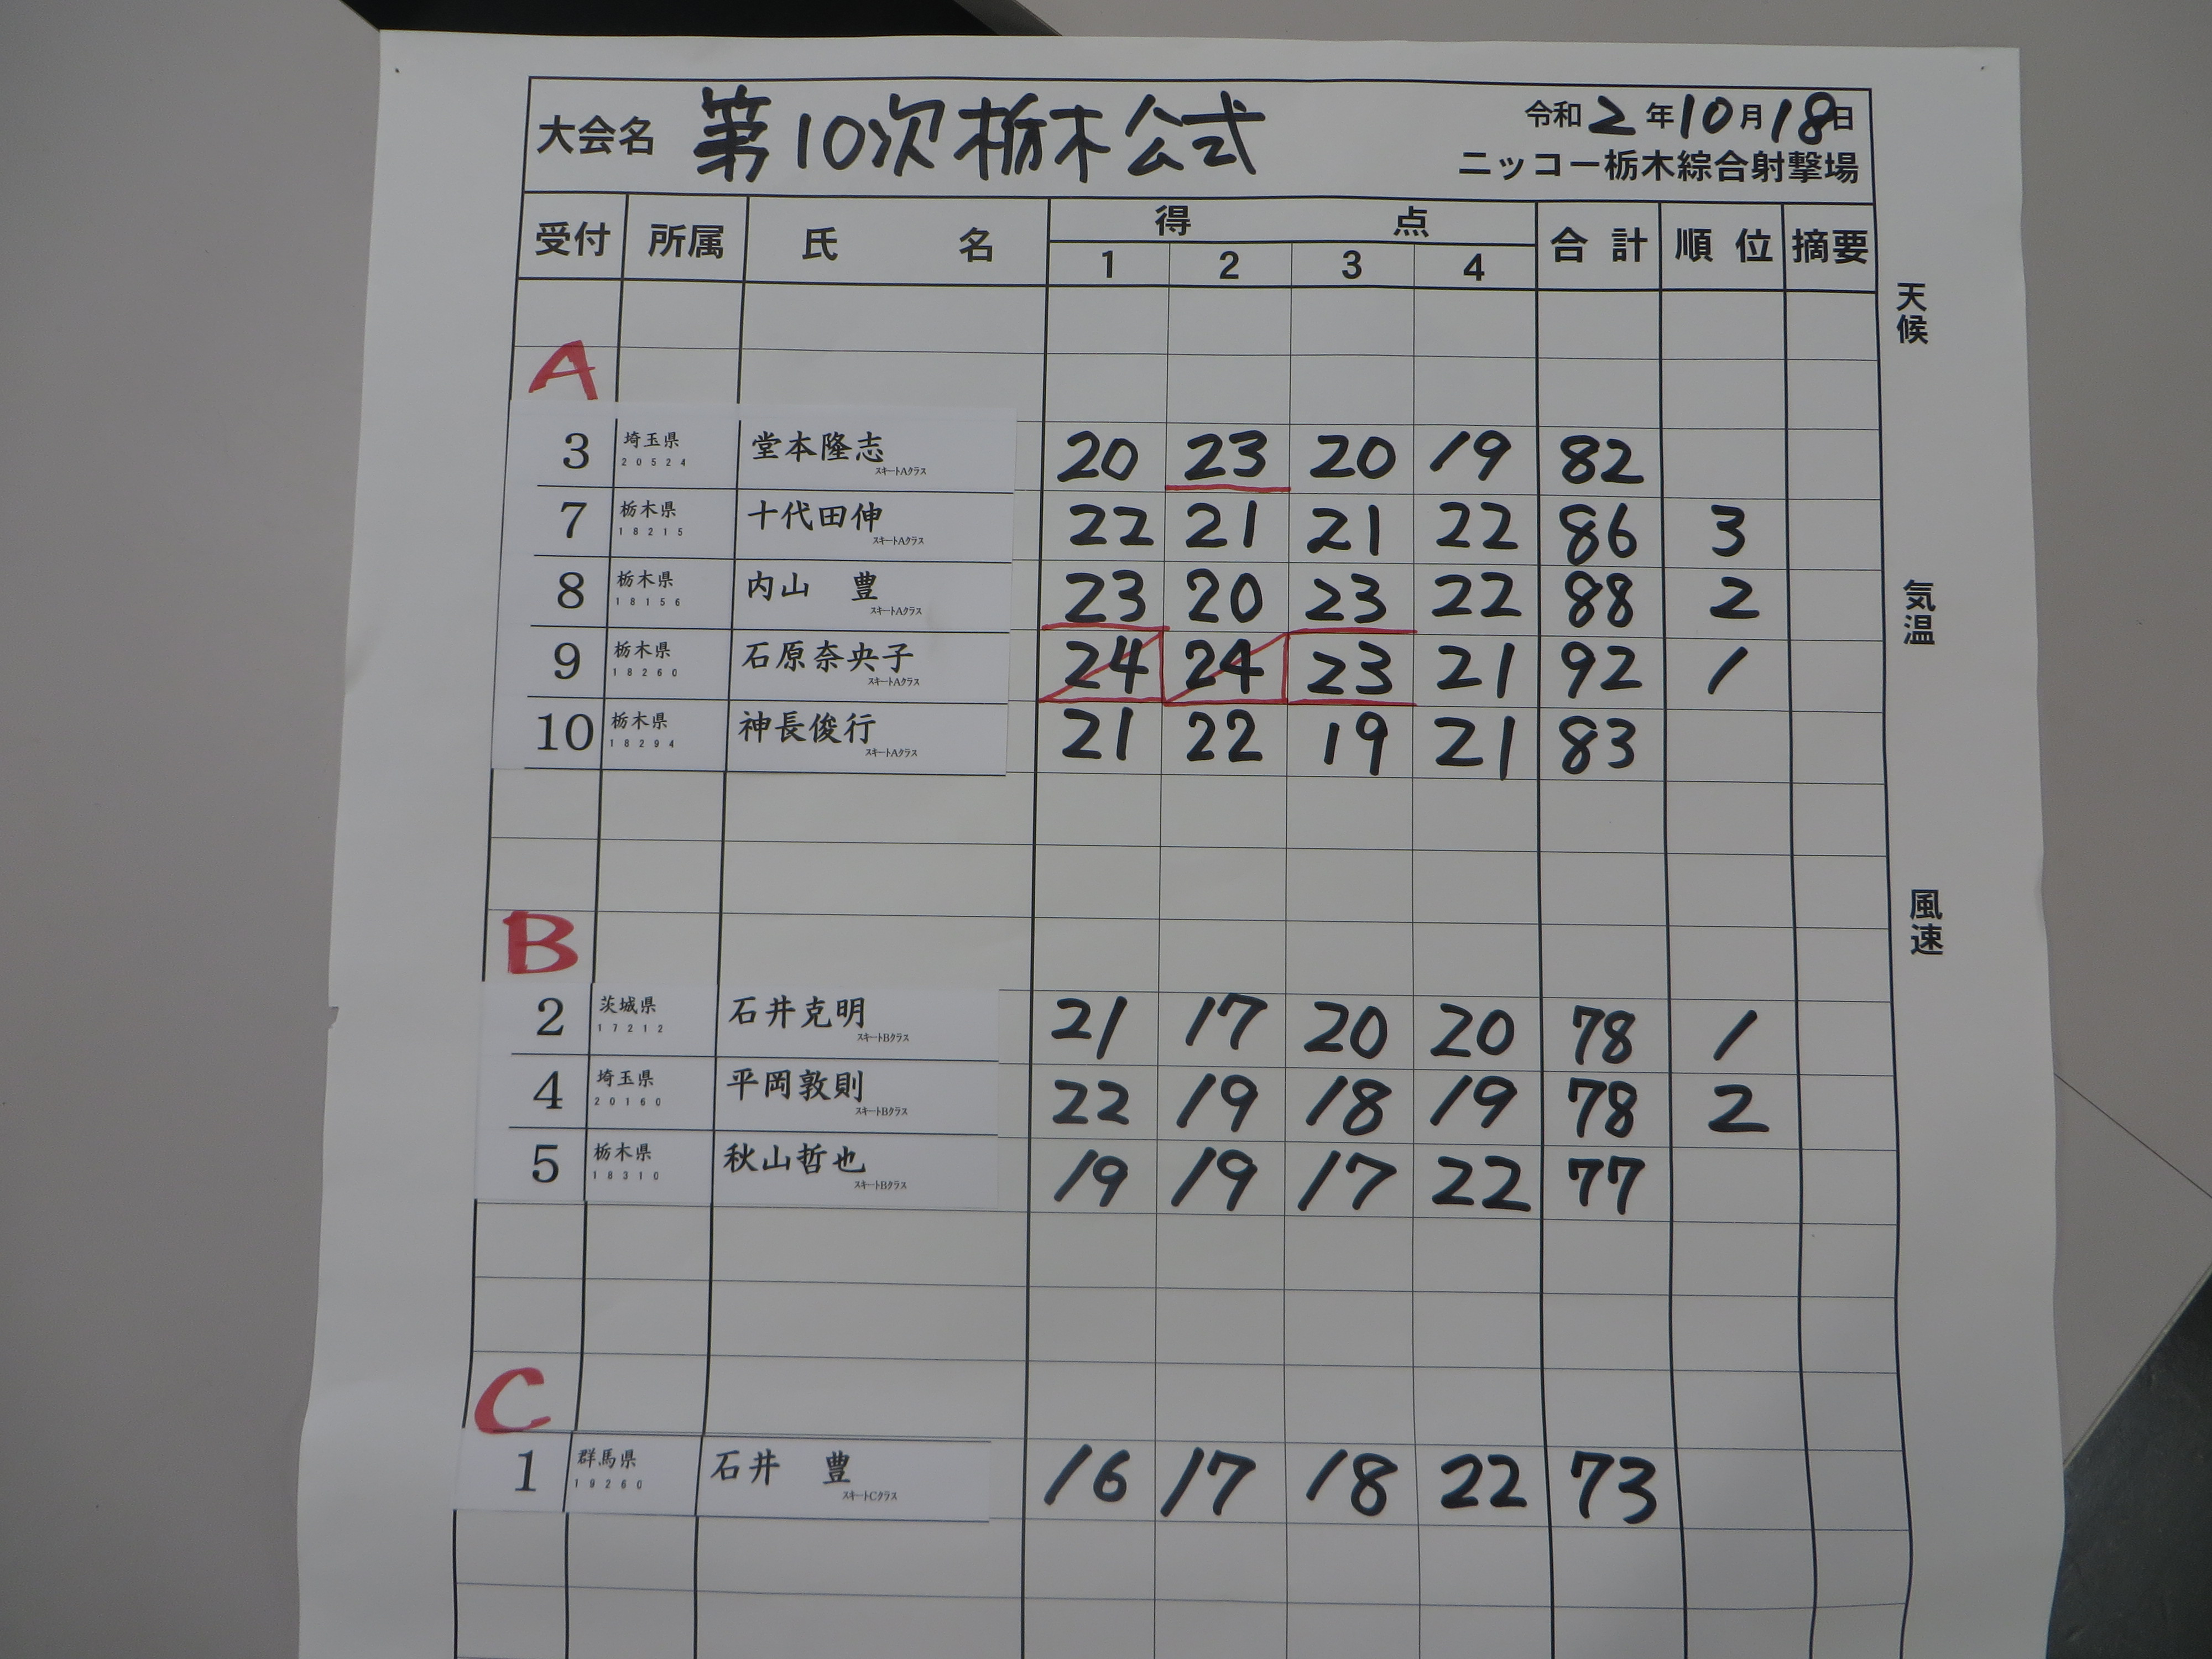 大会名 第10次栃木公式 令和2年10月18日
ニッコー栃木綜合射撃場
受付 所属 氏名 得点 合計 順位 摘要
1 2 3 4
天候
A
3 埼玉県 20524 堂本隆志 スキートAクラス 20 23 20 19 82
7 栃木県 18215 十代田伸 スキートAクラス 22 21 21 22 86 3
8 栃木県 18156 内山 豊 スキートAクラス 23 20 23 22 88 2
気温
9 栃木県 18260 石原奈央子 スキートAクラス 24 24 23 21 92 1
10 栃木県 18294 神長俊行 スキートAクラス 21 22 19 21 83
風速
B
2 茨城県 17212 石井克明 スキートBクラス 21 17 20 20 78 1
4 埼玉県 20160 平岡敦則 スキートBクラス 22 19 18 19 78 2
5 栃木県 18310 秋山哲也 スキートBクラス 19 19 17 22 77
C
1 群馬県 19260 石井 豊 スキートCクラス 16 17 18 22 73